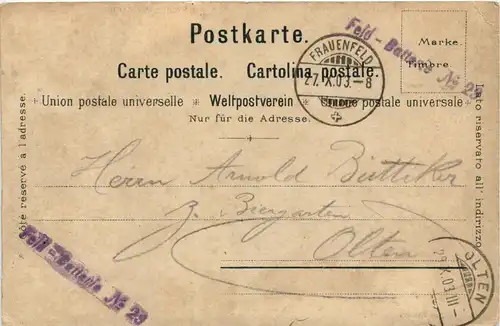 Postkarte.
Carte postale. Cartolina postale.
Union postale universelle * Weltpostverein * Unione postale universale
Nur für die Adresse.
Marke.
Timbre.
Feld-Batterie № 29
FRAUENFELD
27.X.03.-8
Côté réservé à l'adresse.
Lato riservato all' indirizzo.
Herrn Arnold Büttiker
z. Biergarten
Olten
Feld-Batterie № 29
OLTEN
X.03.III-